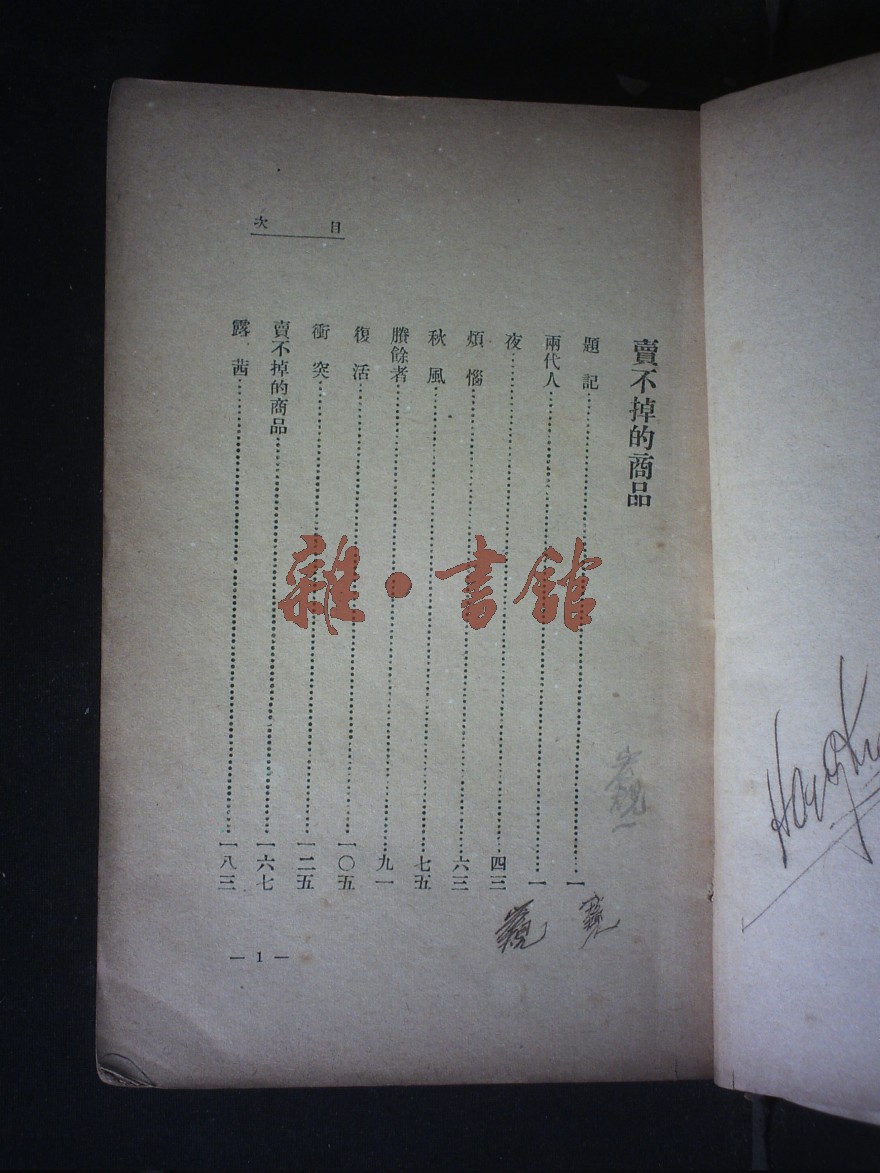 賣不掉的商品
目次
題記……一
兩代人……一
夜……四三
煩惱……六三
秋風……七五
賸餘者……九一
復活……一〇五
衝突……一二五
賣不掉的商品……一六七
露茜……一八三
— 1 —
雜·書館